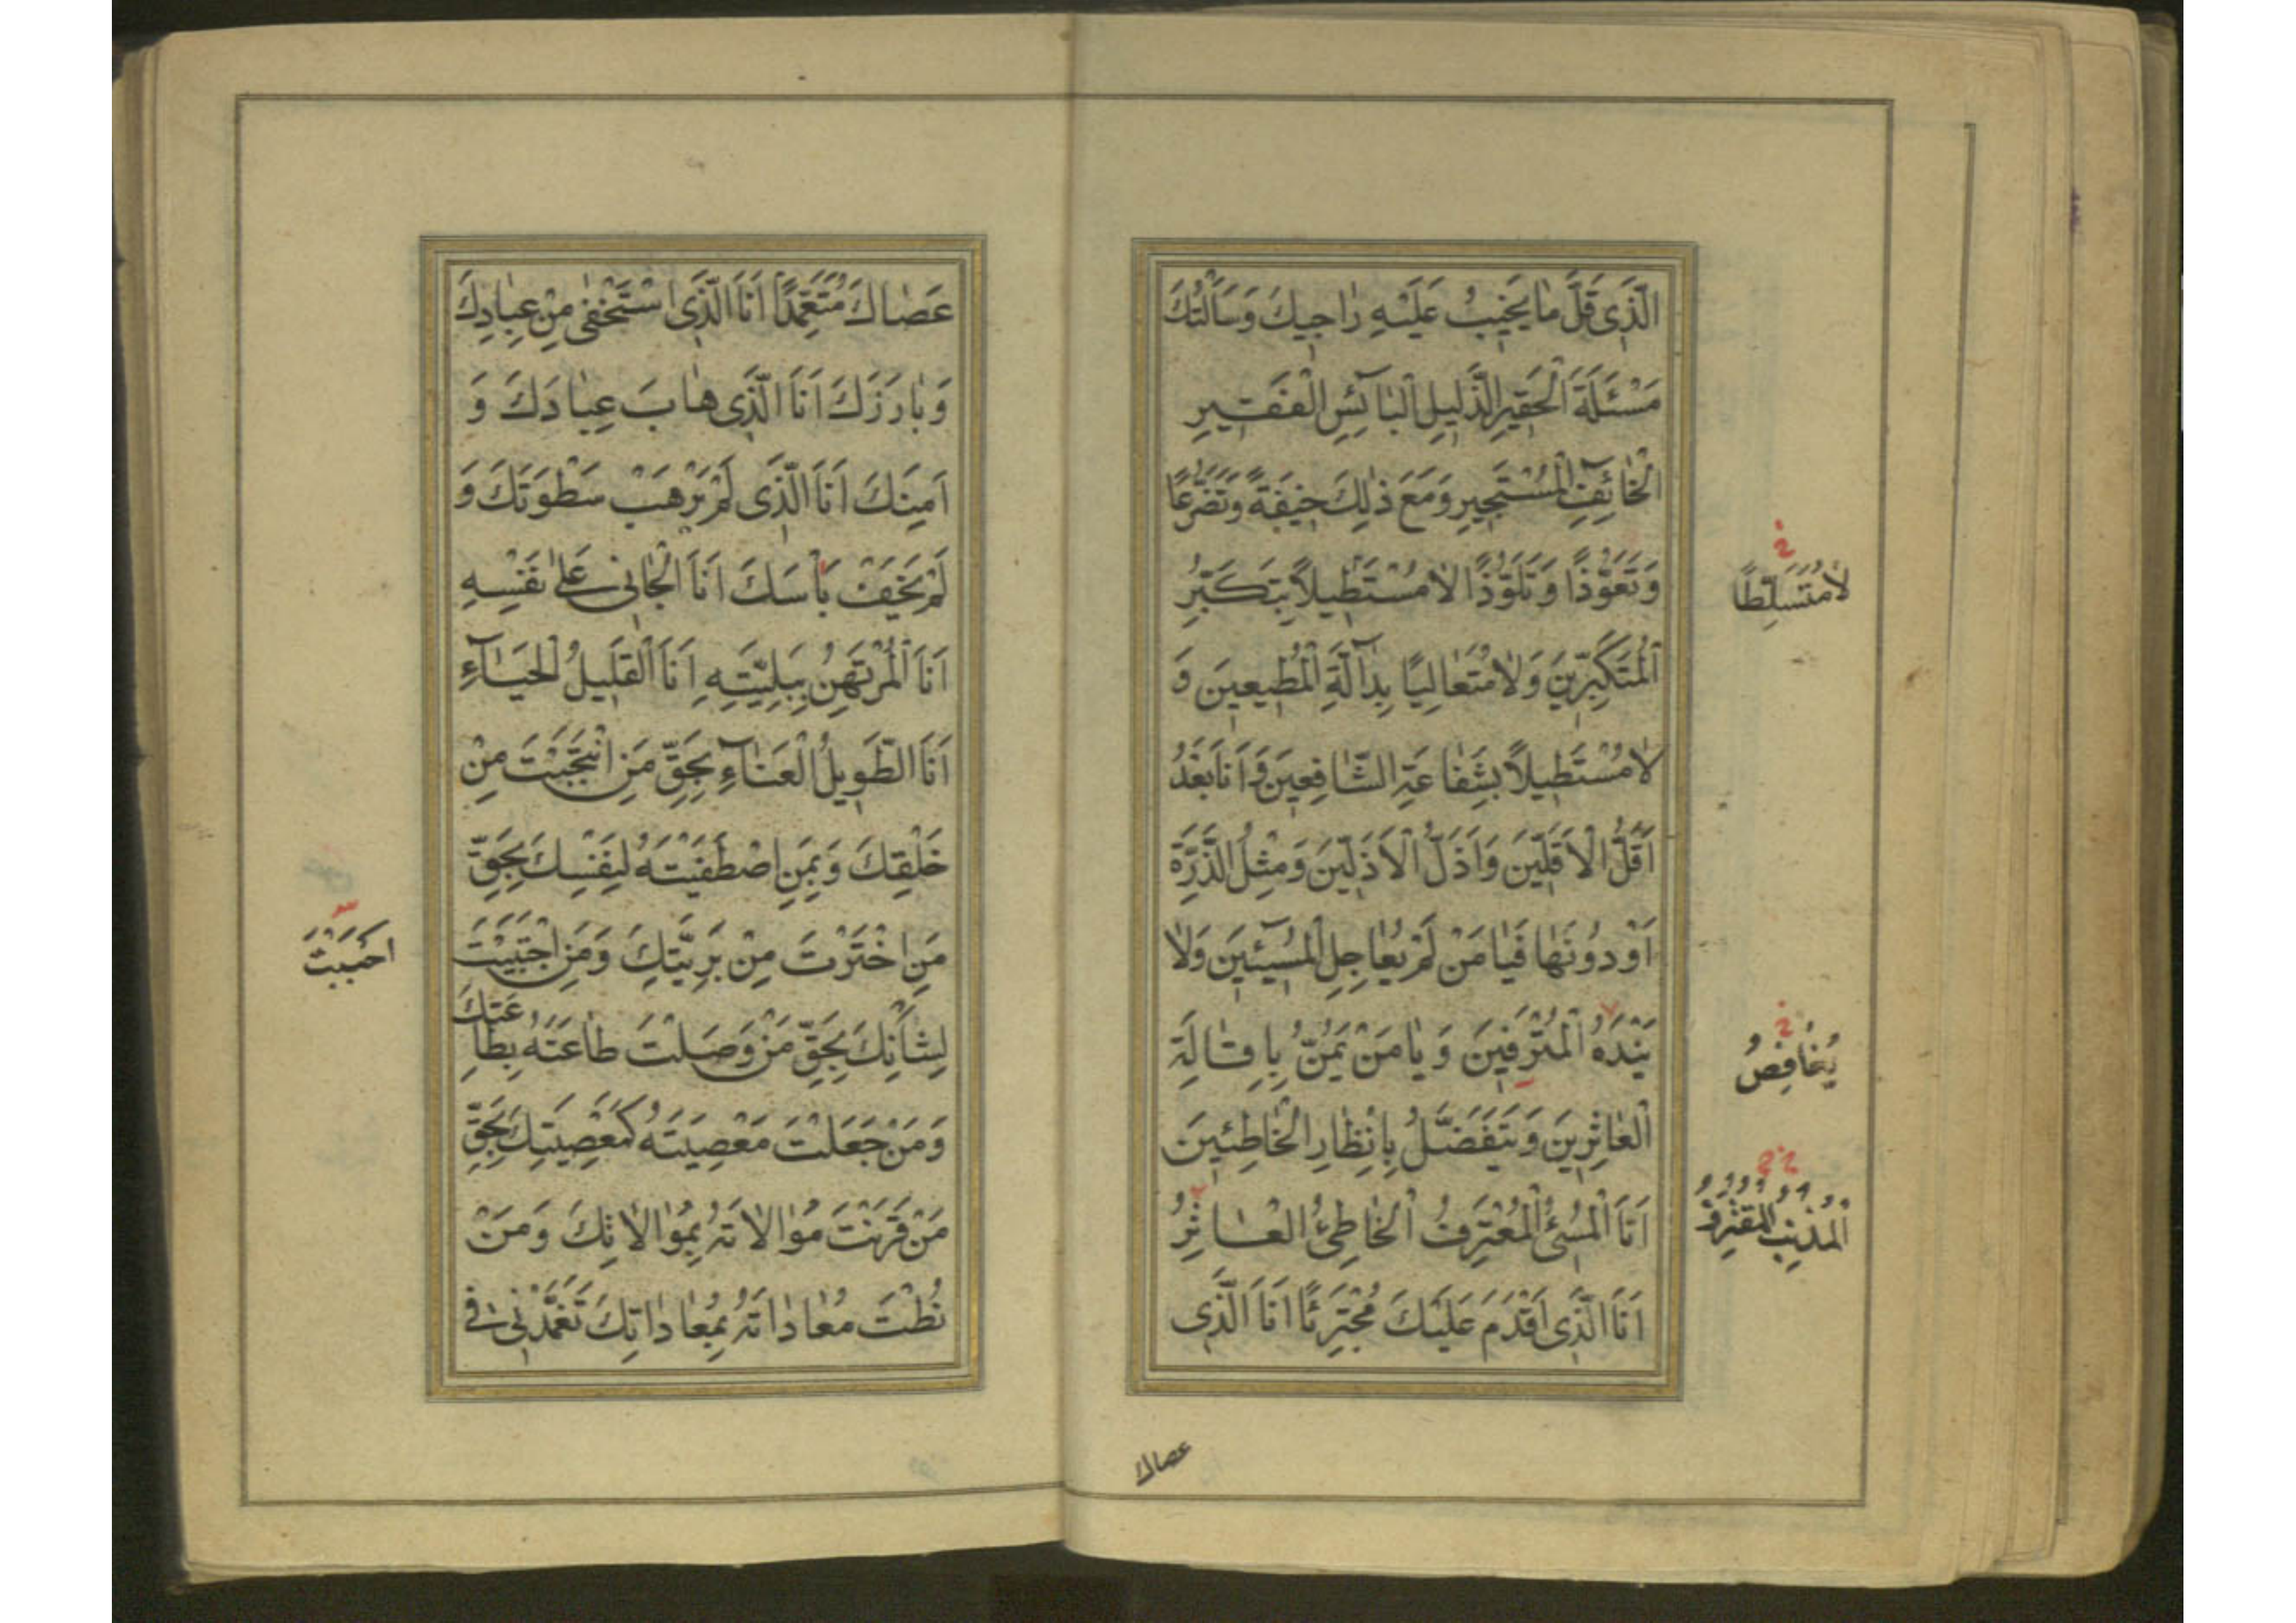 الَّذِی قَلَّ مٰا یَخِیبُ عَلَیْهِ رٰاجِیكَ وَسَاَلْتُكَ
مَسْئَلَةَ الْحَقِیرِ الذَّلِیلِ الْبٰآئِسِ الْفَقِیرِ
الْخٰآئِفِ الْمُسْتَجِیرِ وَمَعَ ذٰلِكَ خِیفَةً وَتَضَرُّعًا
وَتَعَوُّذًا وَتَلَوُّذًا لٰا مُسْتَطِیلًا بِتَكَبُّرِ
لٰا مُتَسَلِّطًا
الْمُتَكَبِّرِینَ وَلٰا مُتَعٰالِیًا بِدٰآلَّةِ الْمُطِیعِینَ وَ
لٰا مُسْتَطِیلًا بِشَفٰاعَةِ الشّٰافِعِینَ وَ اَنَا بَعْدُ
اَقَلُّ الْاَقَلِّینَ وَاَذَلُّ الْاَذَلِّینَ وَمِثْلُ الذَّرَّةِ
اَوْ دُونَهٰا فَیٰا مَنْ لَمْ یُعٰاجِلِ الْمُسِیٓئِینَ وَلٰا
یَنْدَهُ الْمُتْرَفِینَ وَ یٰا مَنْ یَمُنُّ بِاِقٰالَةِ
یُغٰافِصُ
الْعٰاثِرِینَ وَیَتَفَضَّلُ بِاِنْظٰارِ الْخٰاطِئِینَ
اَنَا الْمُسِیُٔ الْمُعْتَرِفُ الْخٰاطِئُ الْعٰاثِرُ
الْمُذْنِبُ الْمُقْتَرِفُ
اَنَا الَّذِی اَقْدَمَ عَلَیْكَ مُجْتَرِئًا اَنَا الَّذِی
عصاك
عَصٰاكَ مُتَعَمِّدًا اَنَا الَّذِی اسْتَخْفٰی مِنْ عِبٰادِكَ
وَبٰارَزَكَ اَنَا الَّذِی هٰابَ عِبٰادَكَ وَ
اَمِنَكَ اَنَا الَّذِی لَمْ یَرْهَبْ سَطْوَتَكَ وَ
لَمْ یَخَفْ بَاْسَكَ اَنَا الْجٰانِی عَلٰی نَفْسِهِ
اَنَا الْمُرْتَهَنُ بِبَلِیَّتِهِ اَنَا الْقَلِیلُ الْحَیٰآءِ
اَنَا الطَّوِیلُ الْعَنٰآءِ بِحَقِّ مَنِ انْتَجَبْتَ مِنْ
خَلْقِكَ وَبِمَنِ اصْطَفَیْتَهُ لِنَفْسِكَ بِحَقِّ
مَنِ اخْتَرْتَ مِنْ بَرِیَّتِكَ وَمَنِ اجْتَبَیْتَ
احْبَبْتَ
لِشَاْنِكَ بِحَقِّ مَنْ وَصَلْتَ طٰاعَتَهُ بِطٰاعَتِكَ
وَمَنْ جَعَلْتَ مَعْصِیَتَهُ كَمَعْصِیَتِكَ بِحَقِّ
مَنْ قَرَنْتَ مُوٰالٰاتَهُ بِمُوٰالٰاتِكَ وَمَنْ
نُطْتَ مُعٰادٰاتَهُ بِمُعٰادٰاتِكَ تَغَمَّدْنِی فِی